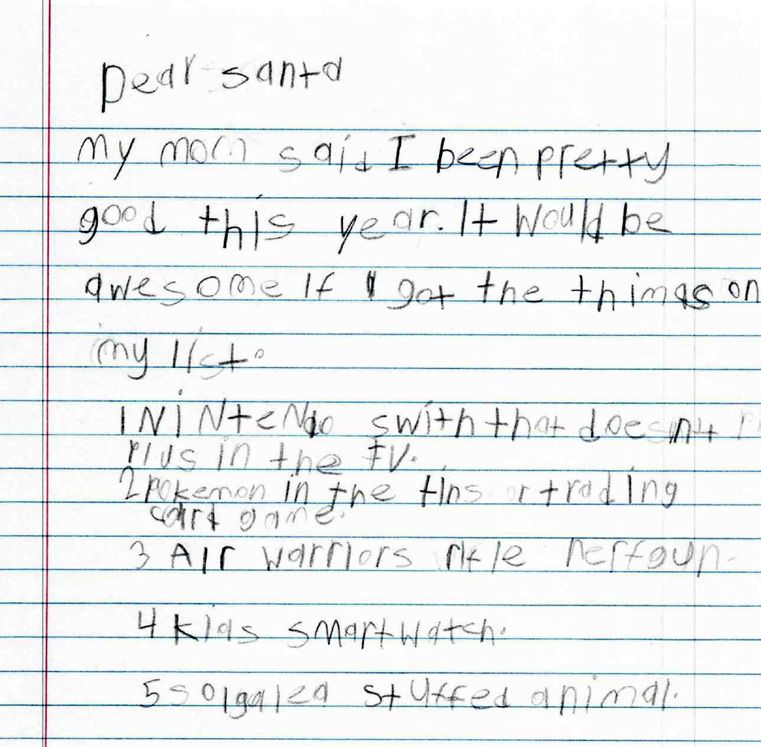 Dear santa
my mom said I been pretty
good this year. It would be
awesome If I got the things on
my list.
1 NiNteNdo swith that doesn't
plus in the tv.
2 pokemon in the tins or trading
card game.
3 Air warriors rifle nerf gun.
4 kids smartwatch.
5 solgalea stuffed animal.